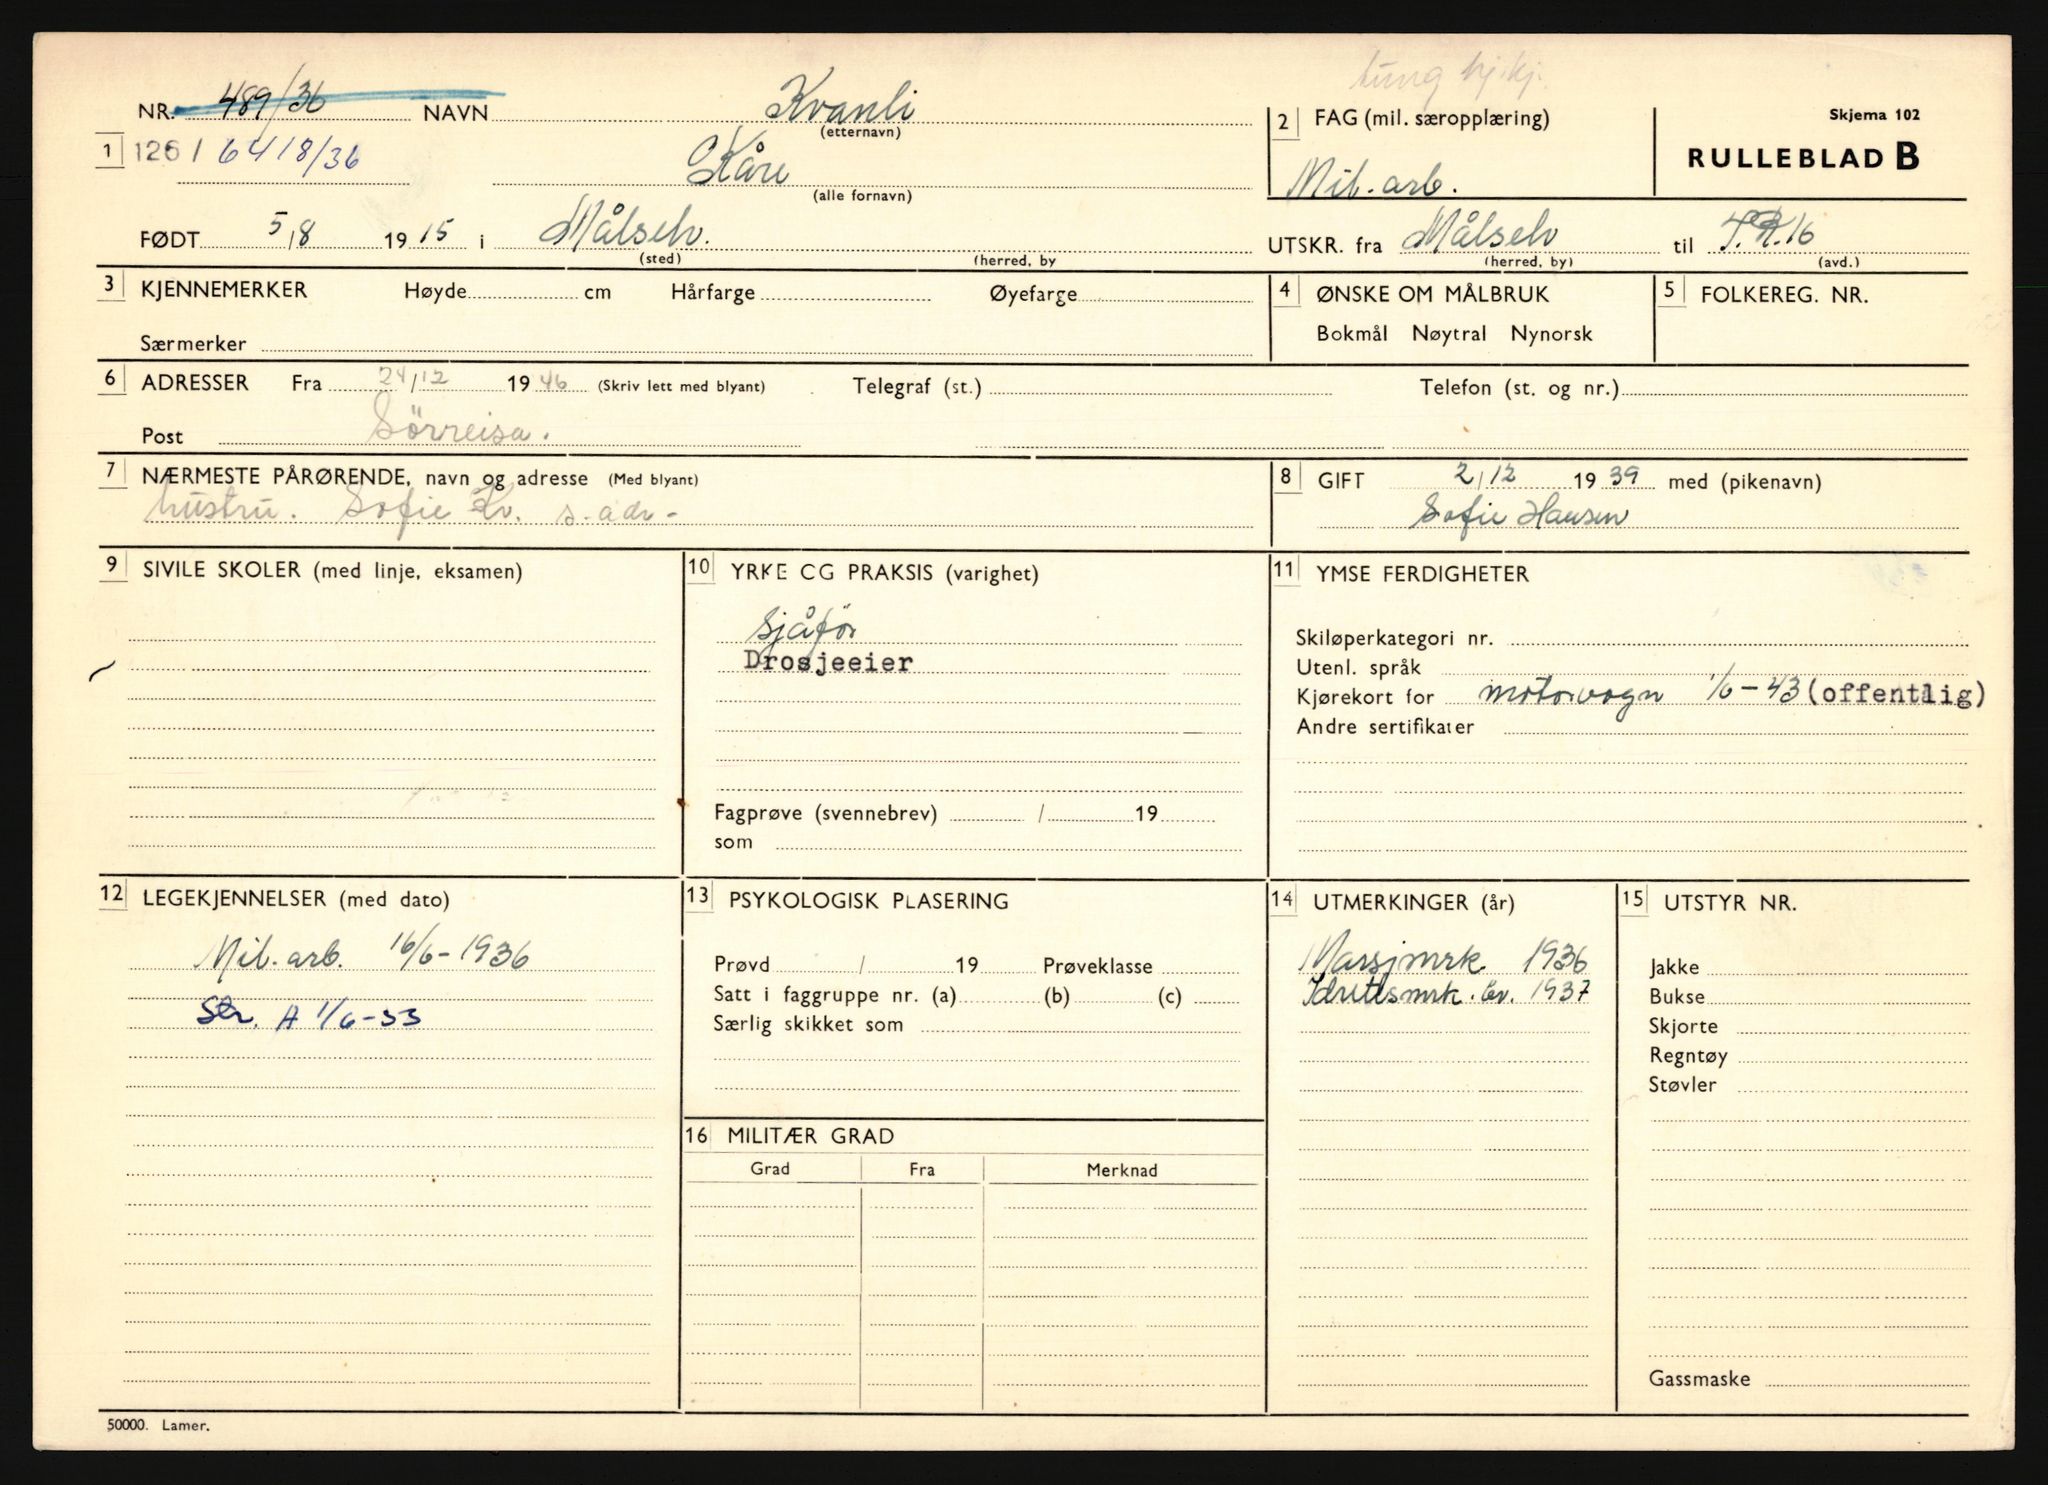 tung hj.kj.
NR. 489/36 NAVN Kvanli
(etternavn)
2 FAG (mil. særopplæring)
Skjema 102
1 126 / 6418/36 Kåre
(alle fornavn)
Mil. arb.
RULLEBLAD B
FØDT 5/8 1915 i Målselv.
(sted) (herred, by
UTSKR. fra Målselv til I.R.16
(herred, by) (avd.)
3 KJENNEMERKER Høyde cm Hårfarge Øyefarge
Særmerker
4 ØNSKE OM MÅLBRUK
Bokmål Nøytral Nynorsk
5 FOLKEREG. NR.
6 ADRESSER Fra 24/12 1946 (Skriv lett med blyant) Telegraf (st.) Telefon (st. og nr.)
Post Sörreisa.
7 NÆRMESTE PÅRØRENDE, navn og adresse (Med blyant)
hustru. Sofie Kv. s. adr-
8 GIFT 2/12 1939 med (pikenavn)
Sofie Hansen
9 SIVILE SKOLER (med linje, eksamen)
10 YRKE CG PRAKSIS (varighet)
sjåför
Drosjeeier
Fagprøve (svennebrev) / 19
som
11 YMSE FERDIGHETER
Skiløperkategori nr.
Utenl. språk
Kjørekort for motorvogn 1/6-43 (offentlig)
Andre sertifikater
12 LEGEKJENNELSER (med dato)
Mil. arb. 16/6-1936
Str. A 1/6-53
13 PSYKOLOGISK PLASERING
Prøvd / 19 Prøveklasse
Satt i faggruppe nr. (a) (b) (c)
Særlig skikket som
14 UTMERKINGER (år)
Marsjmrk. 1936
Idrettsmrk. br. 1937
15 UTSTYR NR.
Jakke
Bukse
Skjorte
Regntøy
Støvler
Gassmaske
16 MILITÆR GRAD
Grad Fra Merknad
50000. Lamer.